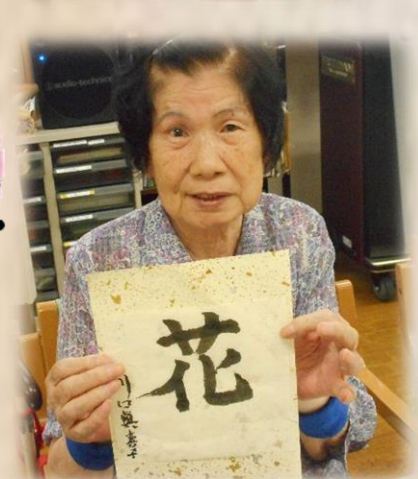 audio-technica
花
川口興喜子